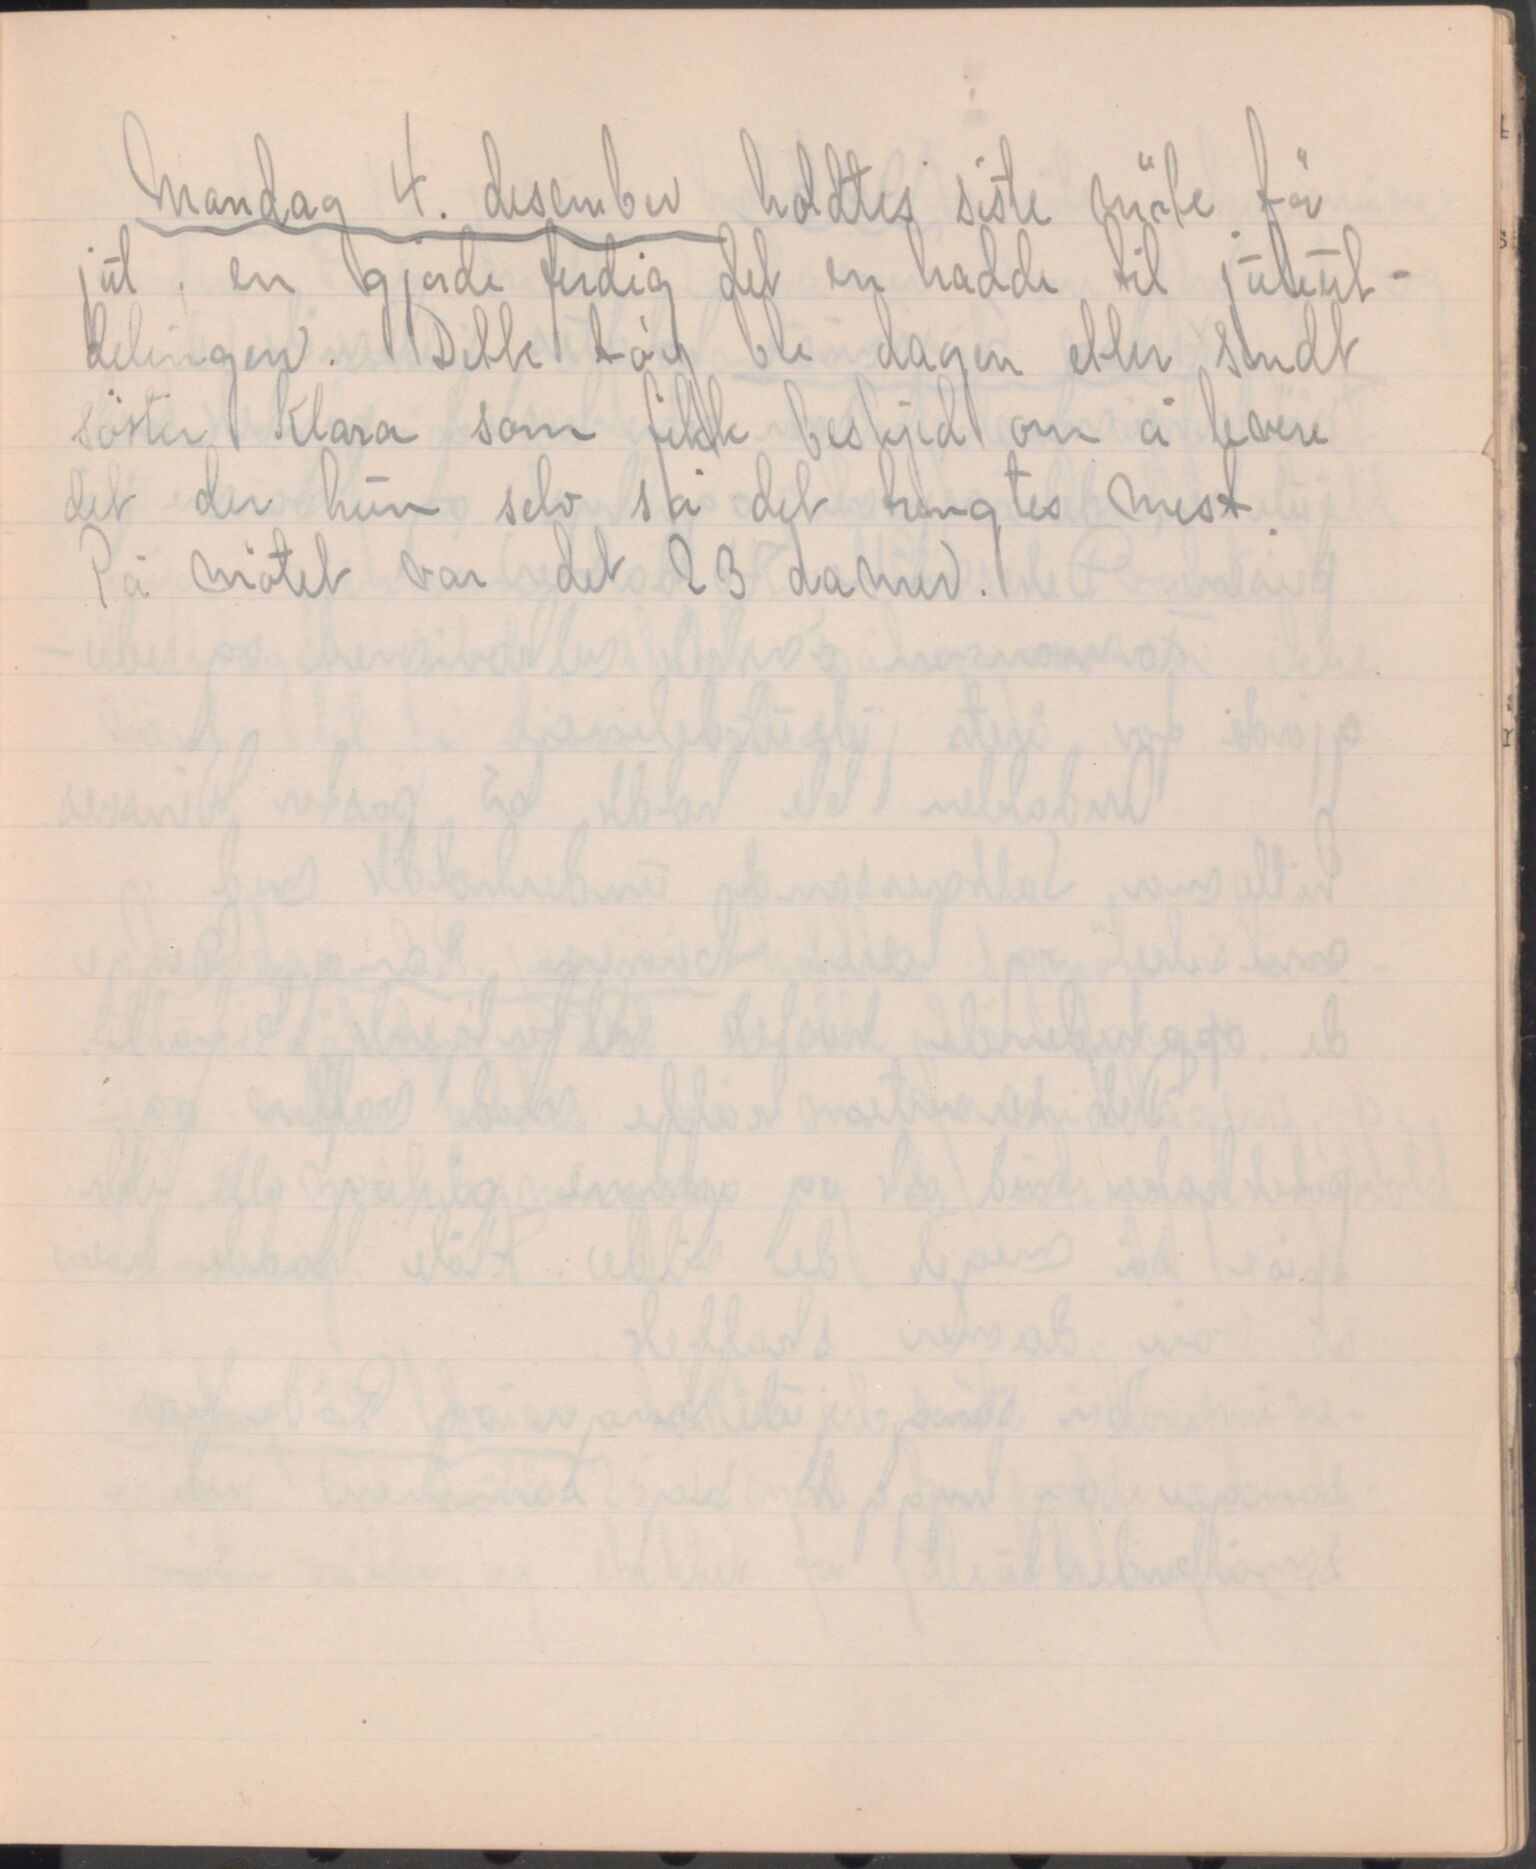 Mandag 4. desember holdtes siste möte för
jul, en gjorde ferdig det en hadde til juleut-
delingen. Dette töy ble dagen etter sendt
söster Klara som fikk beskjed om å levere
det der hun selv så det trengtes mest.
På mötet var det 23 damer.